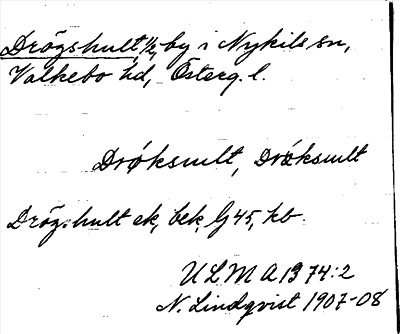 Drögshult, ½, by i Nykils sn,
Valkebo hd, Österg. l.
Drøksult, Dræksult
Drögshult ek, bek, G 45, kb.
ULMA 1374:2
N. Lindqvist 1907-08